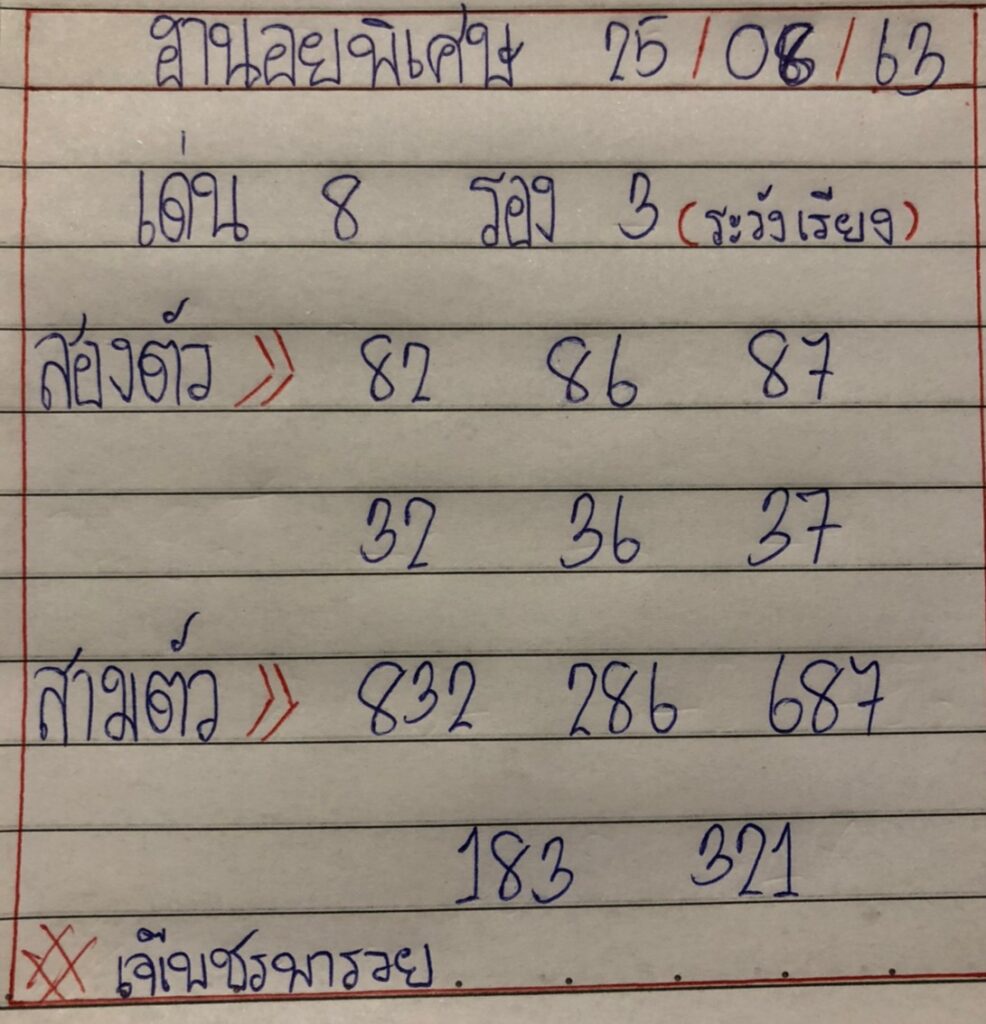 ฮานอยพิเศษ 25/08/63
เด่น 8 รอง 3 (ระวังเรียง)
สองตัว » 82 86 87
32 36 37
สามตัว » 832 286 687
183 321
เจ๊เพชรพารวย.....